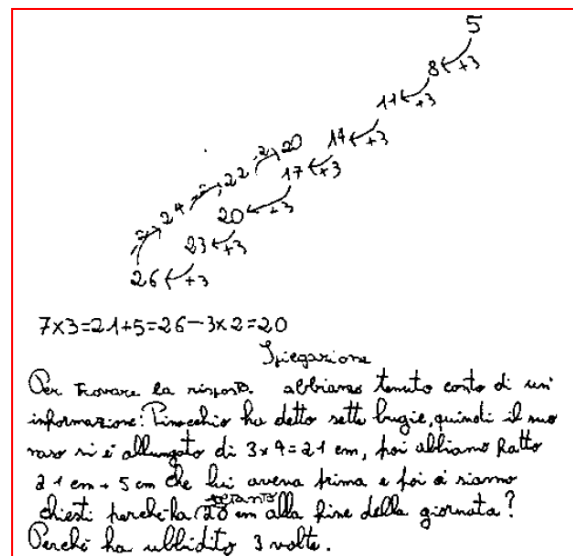 5
8 +3
11 +3
14 +3
-2 20
17 +3
-2 22
20 +3
-2 24
23 +3
26 +3
7x3=21+5=26-3x2=20
Spiegazione
Per trovare la risposta abbiamo tenuto conto di un'
informazione: Pinocchio ha detto sette bugie, quindi il suo
naso si è allungato di 3x7=21 cm, poi abbiamo fatto
21 cm + 5 cm che lui aveva prima e poi ci siamo
chiesti perché ha 20 cm alla fine della giornata?
Perché ha ubbidito 3 volte.